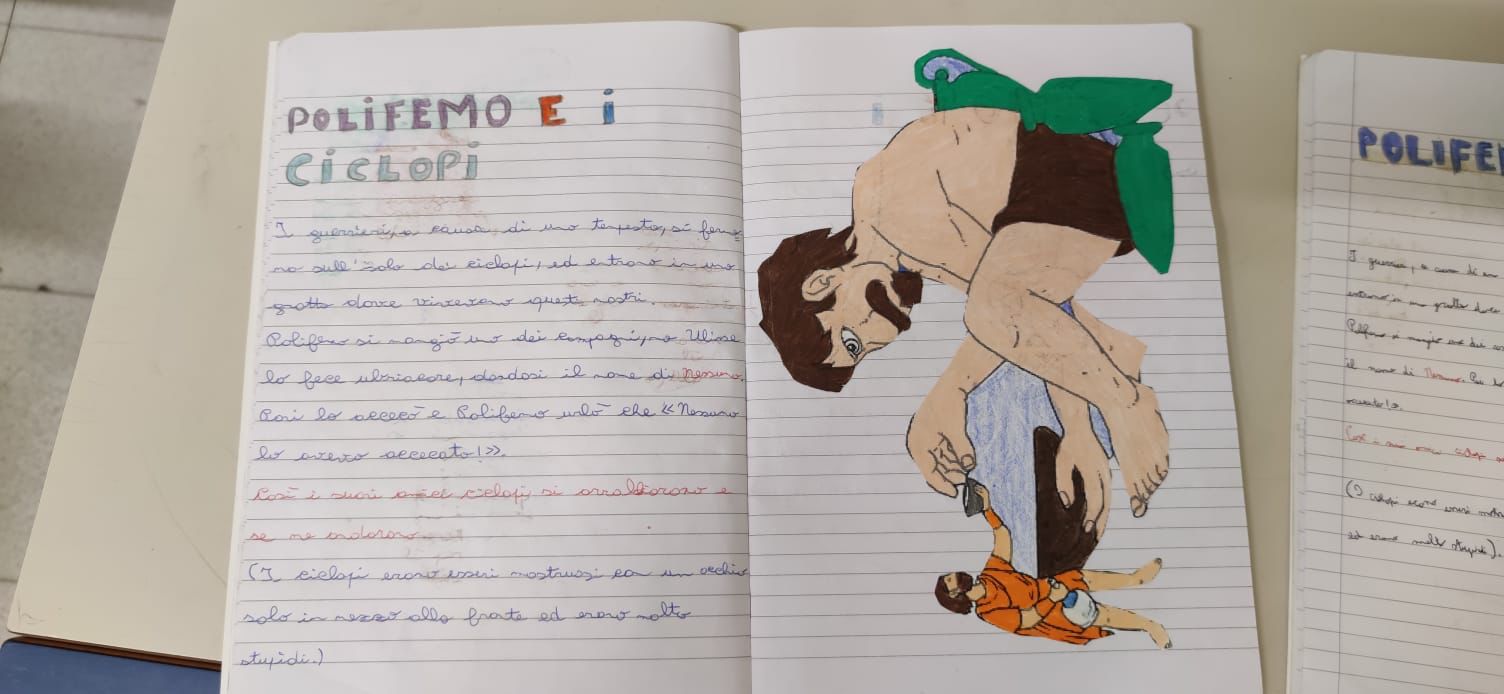 POLIFEMO E i
CiCLOPi
I guerrieri, a causa di una tempesta, si ferma
no sull'isola dei ciclopi, ed entrano in una
grotta dove vivevano questi mostri.
Polifemo si mangiò uno dei compagni, ma Ulisse
lo fece ubriacare, dandosi il nome di Nessuno.
Poi lo accecò e Polifemo urlò che «Nessuno
lo aveva accecato!».
Così i suoi amici ciclopi, si arrabbiarono e
se ne andarono.
(I ciclopi erano esseri mostruosi con un occhio
solo in mezzo alla fronte ed erano molto
stupidi.)
POLIFE
I guerrieri, a causa di un
entrano in una grotta dove
Polifemo si mangiò uno dei co
il nome di Nessuno. Poi lo
accecato!».
Così i suoi amici ciclopi
(I ciclopi erano esseri mostr
ed erano molto stupidi).